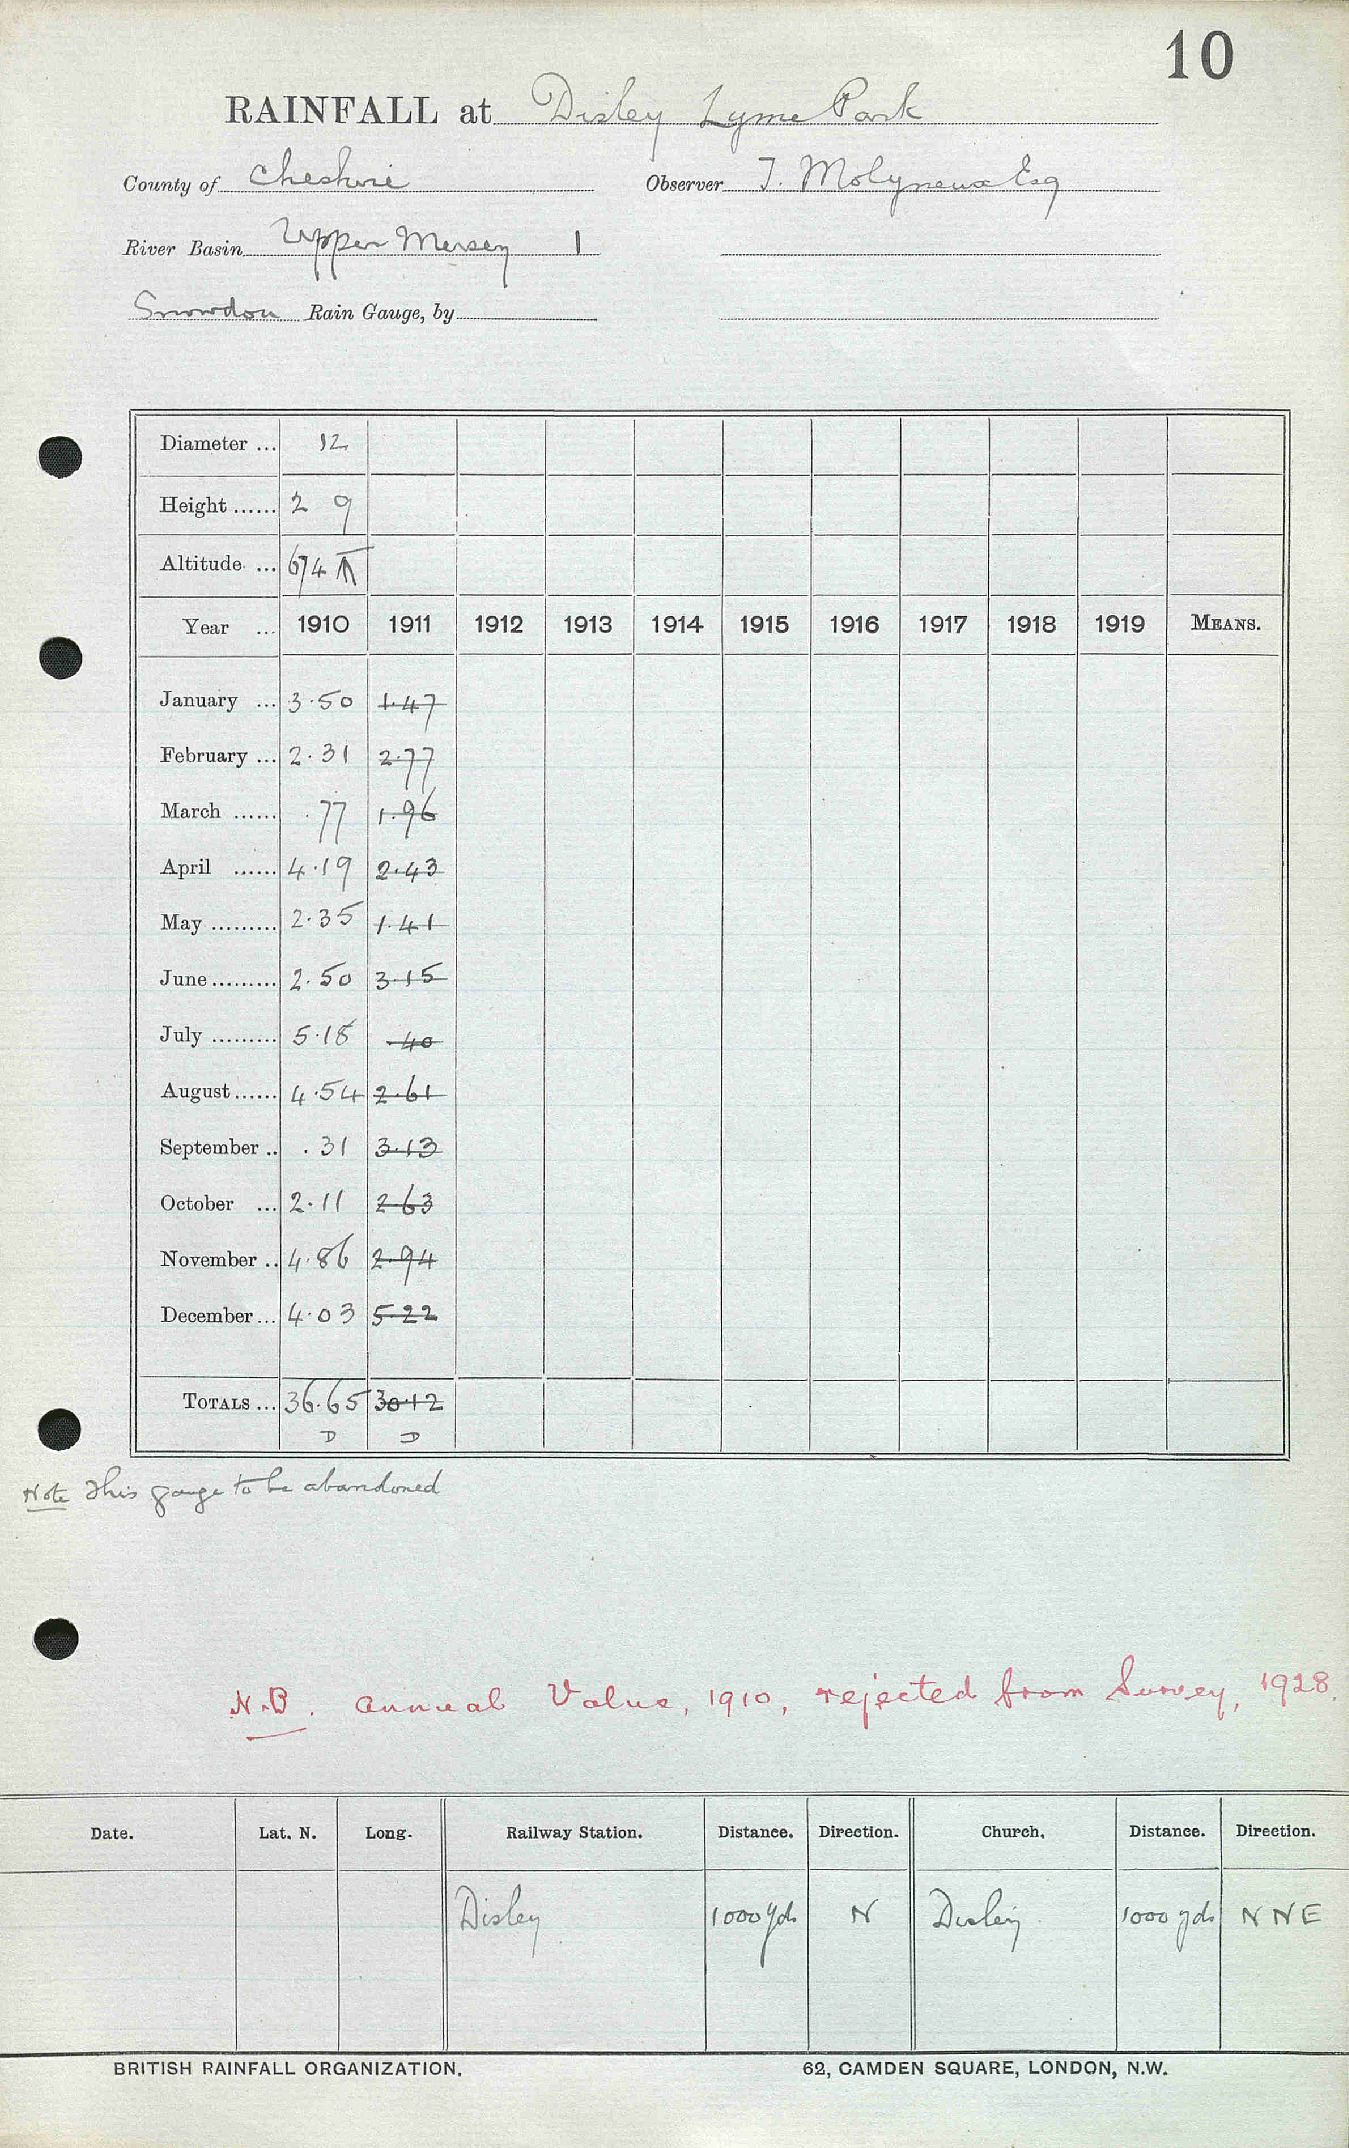 10
RAINFALL at Disley Lyme Park
County of Cheshire Observer T. Molyneux Esq
River Basin Upper Mersey 1
Snowdon Rain Gauge, by
Diameter ... 12
Height ...... 2 9
Altitude ... 674
Year ... 1910 1911 1912 1913 1914 1915 1916 1917 1918 1919 MEANS.
January ... 3.50 1.47
February ... 2.31 2.77
March ...... .77 1.96
April ...... 4.19 2.43
May ......... 2.35 1.41
June ......... 2.50 3.15
July ......... 5.18 .40
August ...... 4.54 2.61
September .. .31 3.13
October ... 2.11 2.63
November .. 4.86 2.94
December ... 4.03 5.22
TOTALS ... 36.65 30.12
D D
Note This gauge to be abandoned
N.B. Annual Value, 1910, rejected from Survey, 1928.
Date. Lat. N. Long. Railway Station. Distance. Direction. Church. Distance. Direction.
Disley 1000 yds N Disley 1000 yds NNE
BRITISH RAINFALL ORGANIZATION. 62, CAMDEN SQUARE, LONDON, N.W.